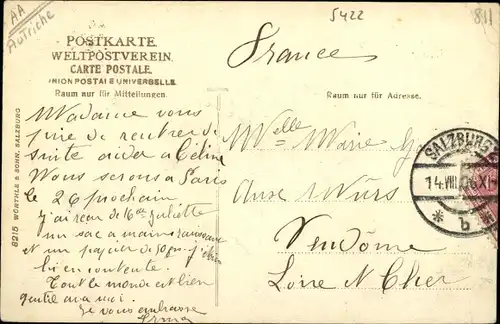 AA
Autriche
5422
811
POSTKARTE
WELTPOSTVEREIN
CARTE POSTALE
UNION POSTALE UNIVERSELLE
Raum nur für Mitteilungen.
France
Raum nur für Adresse.
Madame vous
prie de rentrer de
suite aider à Céline
Nous serons à Paris
le 26 prochain
j'ai reçu de Juliette
un sac à main
et un papier de
bien contente.
Tout le monde est bien
gentil avec moi.
Je vous embrasse
Melle Marie
Vendôme
Loire et Cher
SALZBURG
14.VIII.06.XI
* b *
8215 WÜRTHLE & SOHN, SALZBURG